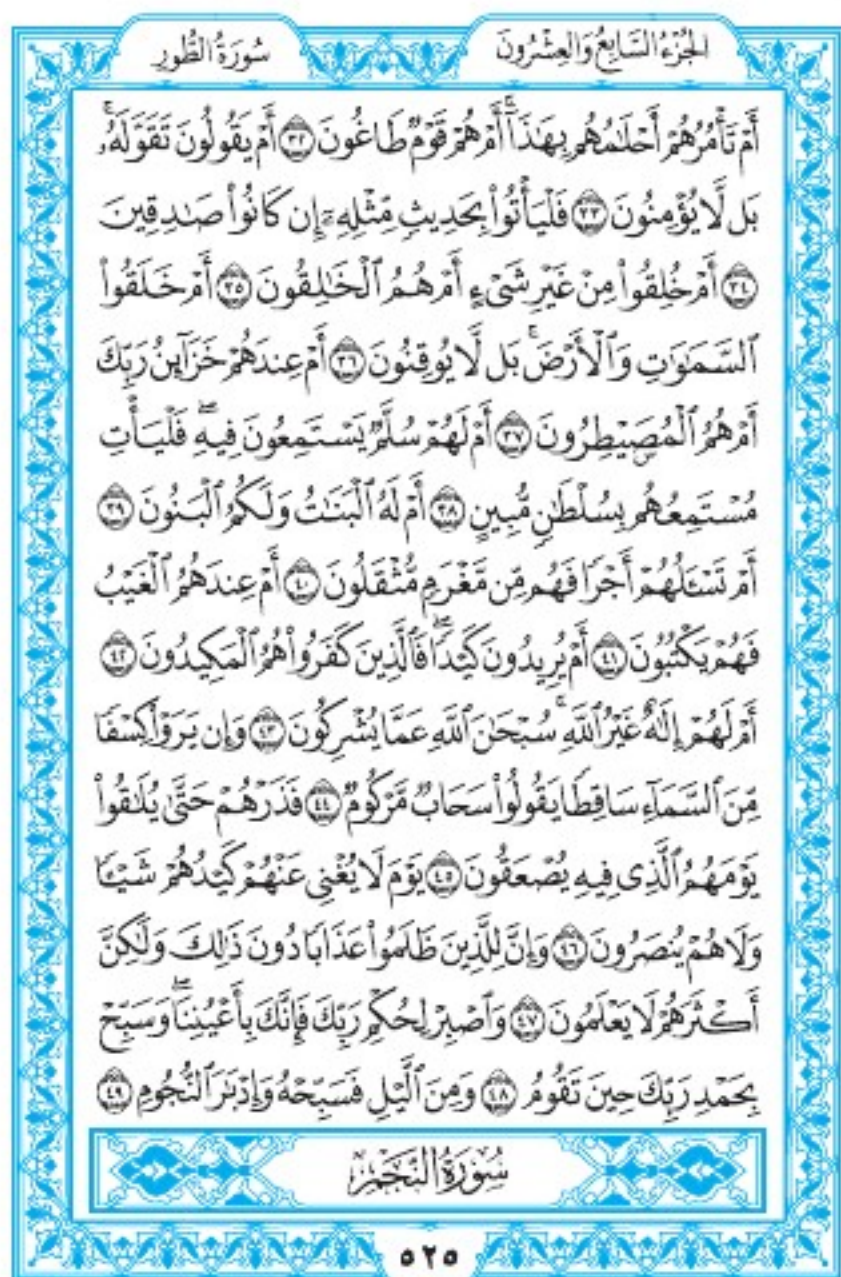 الجُزْءُ السَّابِعُ وَالعِشْرُونَ
سُورَةُ الطُّورِ
أَمْ تَأْمُرُهُمْ أَحْلَٰمُهُم بِهَٰذَآۚ أَمْ هُمْ قَوْمٌ طَاغُونَ ٣٢ أَمْ يَقُولُونَ تَقَوَّلَهُۥۚ
بَل لَّا يُؤْمِنُونَ ٣٣ فَلْيَأْتُوا۟ بِحَدِيثٍ مِّثْلِهِۦٓ إِن كَانُوا۟ صَٰدِقِينَ
٣٤ أَمْ خُلِقُوا۟ مِنْ غَيْرِ شَىْءٍ أَمْ هُمُ ٱلْخَٰلِقُونَ ٣٥ أَمْ خَلَقُوا۟
ٱلسَّمَٰوَٰتِ وَٱلْأَرْضَۚ بَل لَّا يُوقِنُونَ ٣٦ أَمْ عِندَهُمْ خَزَآئِنُ رَبِّكَ
أَمْ هُمُ ٱلْمُصَۣيْطِرُونَ ٣٧ أَمْ لَهُمْ سُلَّمٌ يَسْتَمِعُونَ فِيهِۖ فَلْيَأْتِ
مُسْتَمِعُهُم بِسُلْطَٰنٍ مُّبِينٍ ٣٨ أَمْ لَهُ ٱلْبَنَٰتُ وَلَكُمُ ٱلْبَنُونَ ٣٩
أَمْ تَسْـَٔلُهُمْ أَجْرًا فَهُم مِّن مَّغْرَمٍ مُّثْقَلُونَ ٤٠ أَمْ عِندَهُمُ ٱلْغَيْبُ
فَهُمْ يَكْتُبُونَ ٤١ أَمْ يُرِيدُونَ كَيْدًاۖ فَٱلَّذِينَ كَفَرُوا۟ هُمُ ٱلْمَكِيدُونَ ٤٢
أَمْ لَهُمْ إِلَٰهٌ غَيْرُ ٱللَّهِۚ سُبْحَٰنَ ٱللَّهِ عَمَّا يُشْرِكُونَ ٤٣ وَإِن يَرَوْا۟ كِسْفًا
مِّنَ ٱلسَّمَآءِ سَاقِطًا يَقُولُوا۟ سَحَابٌ مَّرْكُومٌ ٤٤ فَذَرْهُمْ حَتَّىٰ يُلَٰقُوا۟
يَوْمَهُمُ ٱلَّذِى فِيهِ يُصْعَقُونَ ٤٥ يَوْمَ لَا يُغْنِى عَنْهُمْ كَيْدُهُمْ شَيْـًٔا
وَلَا هُمْ يُنصَرُونَ ٤٦ وَإِنَّ لِلَّذِينَ ظَلَمُوا۟ عَذَابًا دُونَ ذَٰلِكَ وَلَٰكِنَّ
أَكْثَرَهُمْ لَا يَعْلَمُونَ ٤٧ وَٱصْبِرْ لِحُكْمِ رَبِّكَ فَإِنَّكَ بِأَعْيُنِنَاۖ وَسَبِّحْ
بِحَمْدِ رَبِّكَ حِينَ تَقُومُ ٤٨ وَمِنَ ٱلَّيْلِ فَسَبِّحْهُ وَإِدْبَٰرَ ٱلنُّجُومِ ٤٩
سُورَةُ النَّجْمِ
٥٢٥